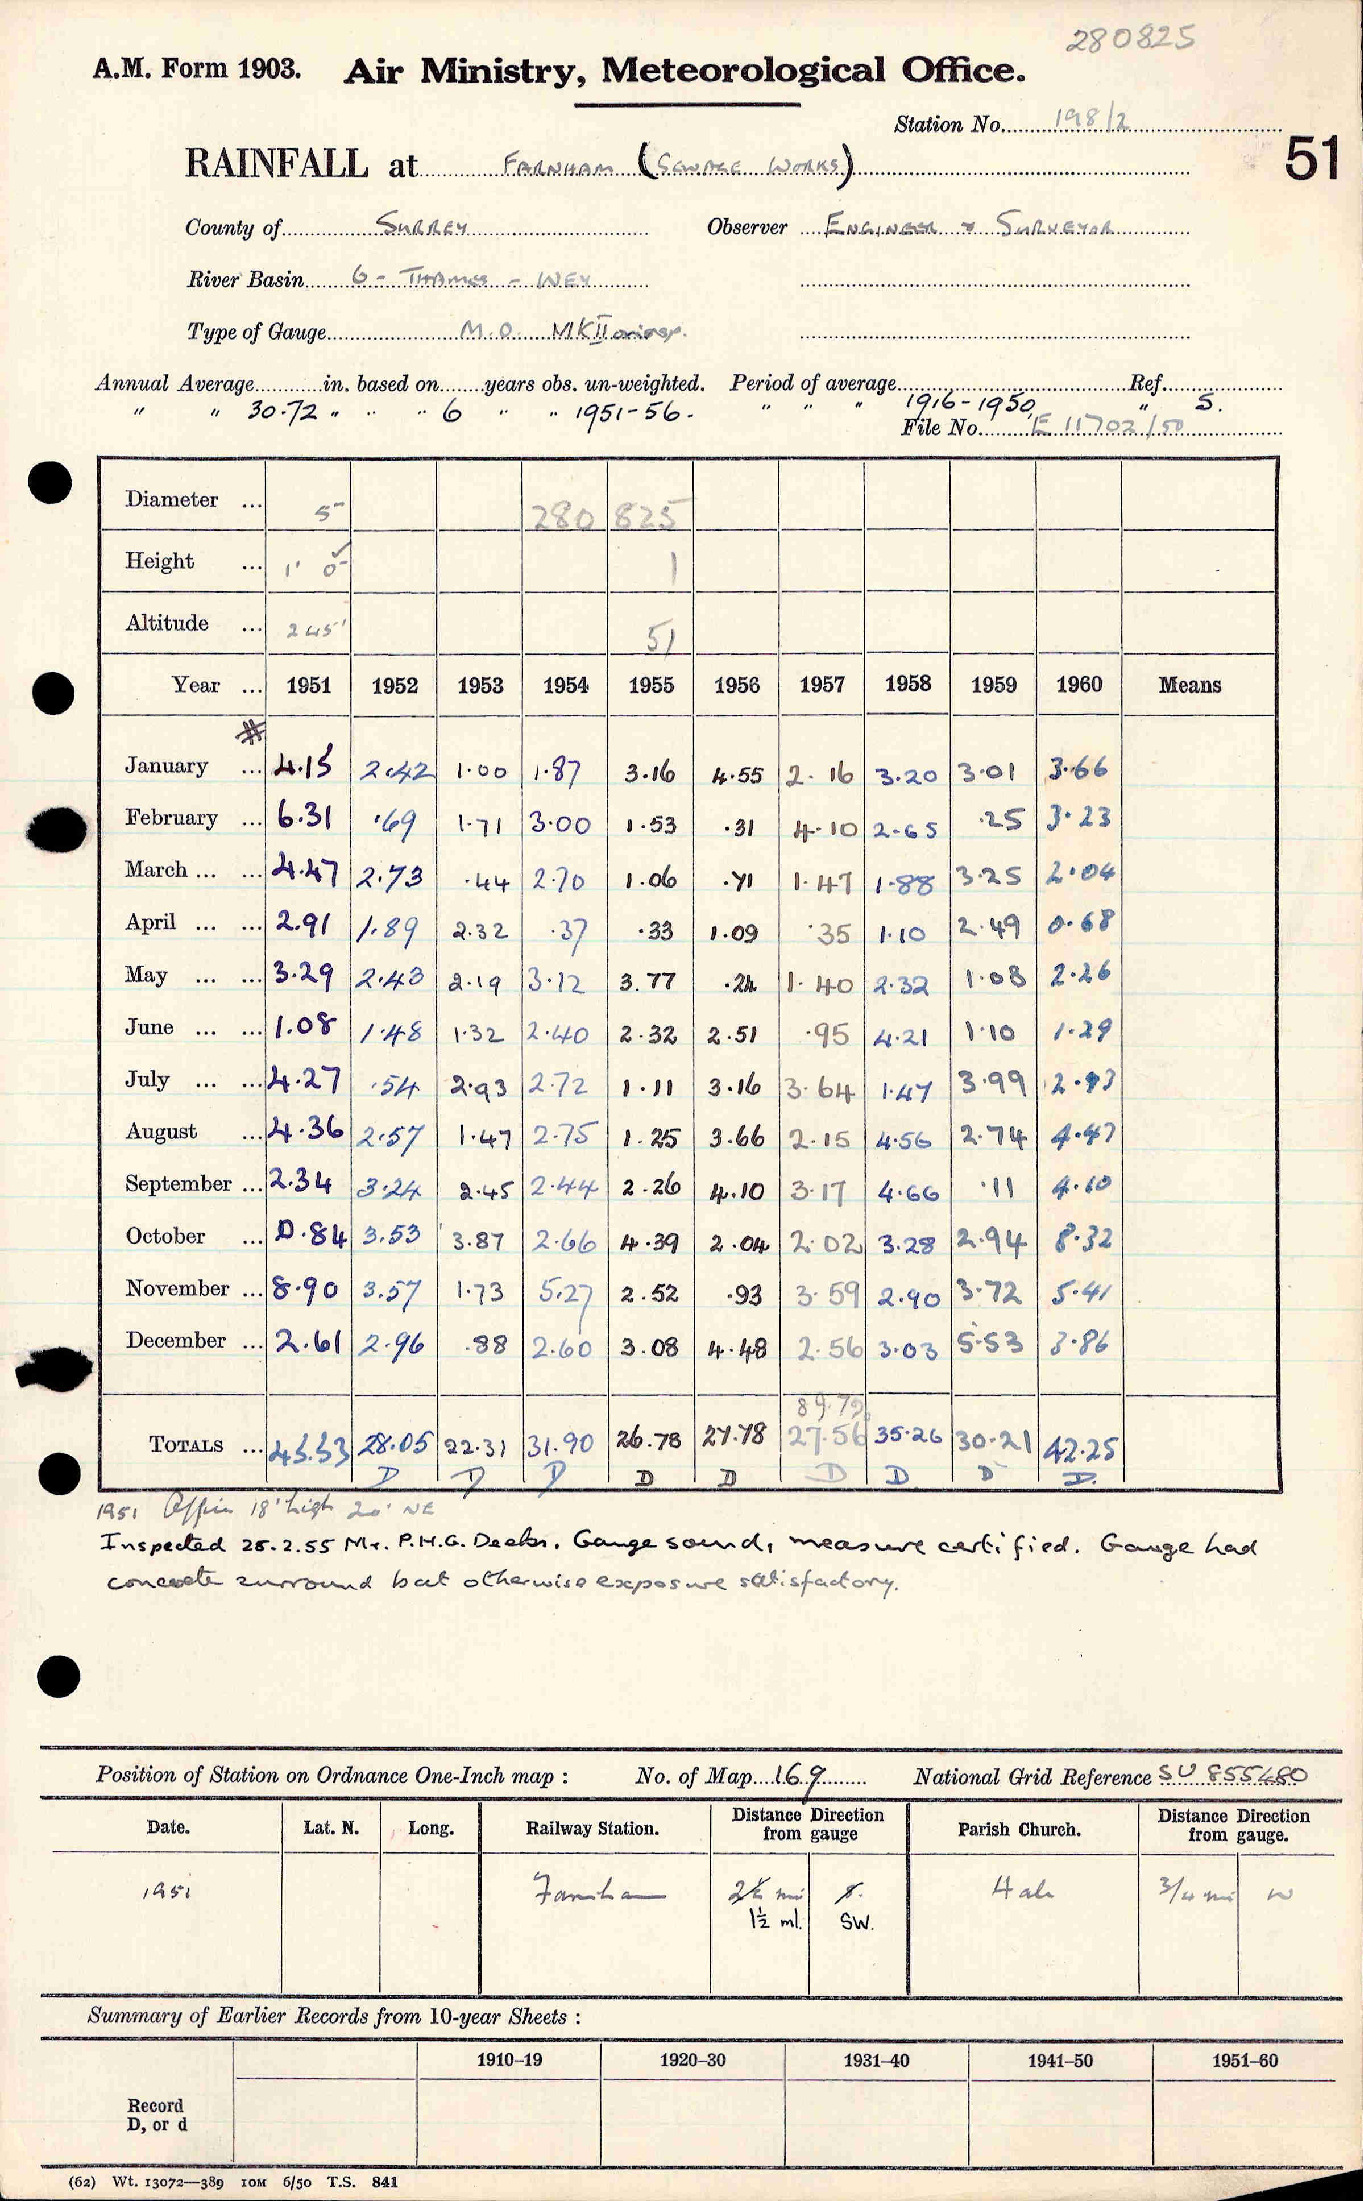 280825
A.M. Form 1903. Air Ministry, Meteorological Office.
Station No. 198/2
51
RAINFALL at FARNHAM (SEWAGE WORKS)
County of SURREY Observer ENGINEER & SURVEYOR
River Basin 6 - THAMES - WEY
Type of Gauge M.O. MKII
Annual Average in. based on years obs. un-weighted. Period of average Ref.
" " 30.72 " " " 6 " " 1951-56. " " " 1916-1950 " S.
File No. E 11702/50
Diameter ... 5" 280 825
Height ... 1' 0" 1
Altitude ... 245' 51
Year ... 1951 1952 1953 1954 1955 1956 1957 1958 1959 1960 Means
#
January ... 4.15 2.42 1.00 1.87 3.16 4.55 2.16 3.20 3.01 3.66
February ... 6.31 .69 1.71 3.00 1.53 .31 4.10 2.65 .25 3.23
March ... ... 4.47 2.73 .44 2.70 1.06 .71 1.47 1.88 3.25 2.04
April ... ... 2.91 1.89 2.32 .37 .33 1.09 .35 1.10 2.49 0.68
May ... ... 3.29 2.43 2.19 3.12 3.77 .24 1.40 2.32 1.08 2.26
June ... ... 1.08 1.48 1.32 2.40 2.32 2.51 .95 4.21 1.10 1.29
July ... ... 4.27 .54 2.93 2.72 1.11 3.16 3.64 1.47 3.99 2.93
August ... 4.36 2.57 1.47 2.75 1.25 3.66 2.15 4.56 2.74 4.47
September ... 2.34 3.24 2.45 2.44 2.26 4.10 3.17 4.66 .11 4.10
October ... 0.84 3.53 3.87 2.66 4.39 2.04 2.02 3.28 2.94 8.32
November ... 8.90 3.57 1.73 5.27 2.52 .93 3.59 2.90 3.72 5.41
December ... 2.61 2.96 .88 2.60 3.08 4.48 2.56 3.03 5.53 3.86
TOTALS ... 45.53 28.05 22.31 31.90 26.78 27.78 27.56 35.26 30.21 42.25
D D D D D D D D D.
1951 Office 18' high 20' NE
Inspected 25.2.55 Mr. P.H.G. Gauge sound, measure certified. Gauge had
concrete surround but otherwise exposure satisfactory.
Position of Station on Ordnance One-Inch map : No. of Map 169 National Grid Reference SU 855480
Date. Lat. N. Long. Railway Station. Distance Direction from gauge Parish Church. Distance Direction from gauge.
1951 Farnham 2½ mi S. Hale 3/4 mi W
1½ ml. SW.
Summary of Earlier Records from 10-year Sheets :
1910-19 1920-30 1931-40 1941-50 1951-60
Record
D, or d
(62) Wt. 13072—389 10M 6/50 T.S. 841